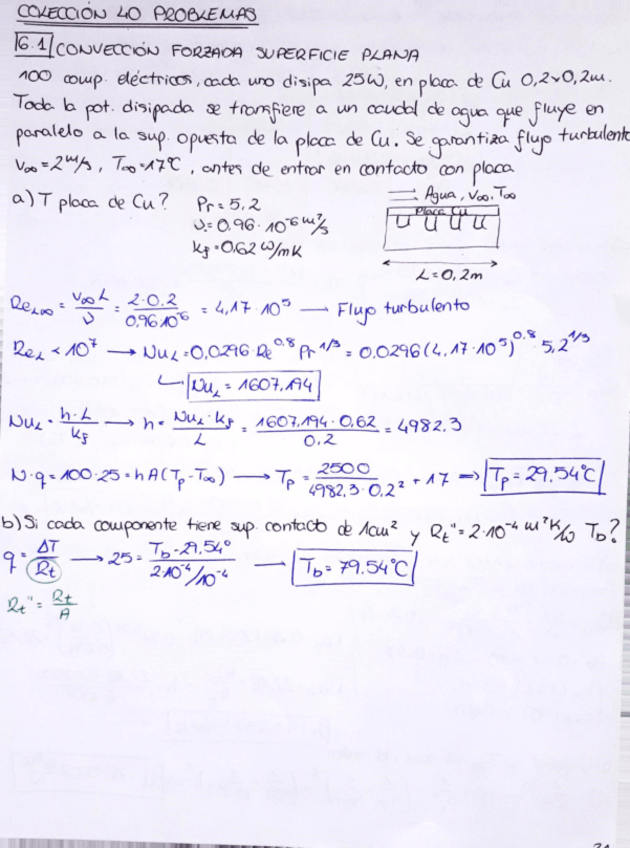 COLECCIÓN 40 PROBLEMAS
6.1 CONVECCIÓN FORZADA SUPERFICIE PLANA
100 comp. eléctricos, cada uno disipa 25W, en placa de Cu 0,2x0,2m.
Toda la pot. disipada se transfiere a un caudal de agua que fluye en
paralelo a la sup. opuesta de la placa de Cu. Se garantiza flujo turbulento
V∞=2m/s, T∞=17°C, antes de entrar en contacto con placa
a) T placa de Cu?
Pr=5,2
ν=0,96·10⁻⁶ m²/s
kf=0,62 W/mK
Agua, V∞, T∞
Placa Cu
L=0,2m
Re_L∞ = V∞L/ν = 2·0,2/0,96·10⁻⁶ = 4,17·10⁵ → Flujo turbulento
Re_L < 10⁷ → Nu_L=0,0296·Re^0,8 Pr^1/3 = 0,0296(4,17·10⁵)^0,8·5,2^1/3
↳ Nu_L = 1607,194
Nu_L = h·L/kf → h = Nu_L·kf/L = 1607,194·0,62/0,2 = 4982,3
N·q=100·25=hA(Tp-T∞) → Tp = 2500/4982,3·0,2² + 17 ⇒ Tp=29,54°C
b) Si cada componente tiene sup. contacto de 1cm² y Rt''=2·10⁻⁴ m²K/W Tb?
q = ΔT/Rt → 25 = Tb-29,54°/2·10⁻⁴/10⁻⁴ → Tb=79,54°C
Rt'' = Rt/A